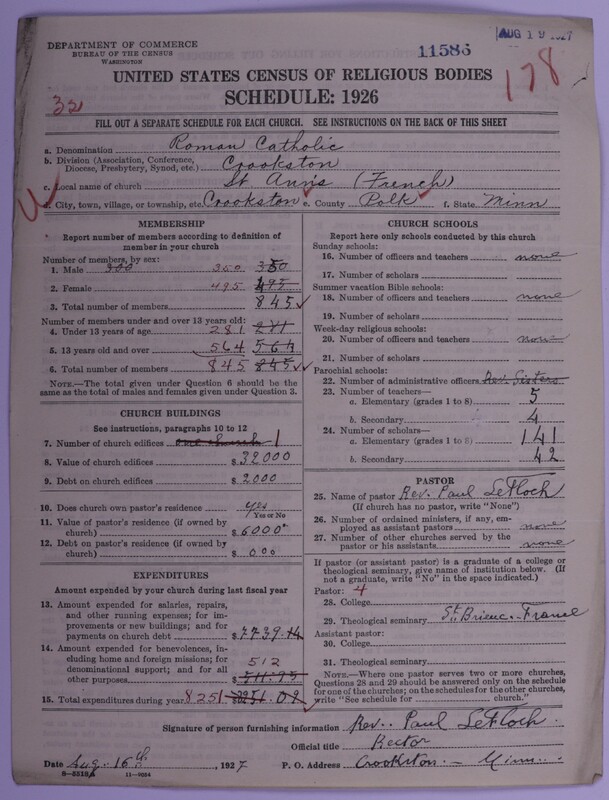 DEPARTMENT OF COMMERCE
BUREAU OF THE CENSUS
WASHINGTON
11586
AUG 19 1927
178
UNITED STATES CENSUS OF RELIGIOUS BODIES
SCHEDULE: 1926
32
FILL OUT A SEPARATE SCHEDULE FOR EACH CHURCH. SEE INSTRUCTIONS ON THE BACK OF THIS SHEET
a. Denomination Roman Catholic
b. Division (Association, Conference, Diocese, Presbytery, Synod, etc.) Crookston
c. Local name of church St Ann's (French)
d. City, town, village, or township, etc. Crookston e. County Polk f. State Minn
MEMBERSHIP
Report number of members according to definition of
member in your church
Number of members, by sex:
1. Male 300 350 350
2. Female 495 495
3. Total number of members 845
Number of members under and over 13 years old:
4. Under 13 years of age 281
5. 13 years old and over 564 564
6. Total number of members 845 845
NOTE.—The total given under Question 6 should be
same as the total of males and females given under Question 3.
CHURCH BUILDINGS
See instructions, paragraphs 10 to 12
7. Number of church edifices one church 1
8. Value of church edifices $ 32000
9. Debt on church edifices $ 2000
10. Does church own pastor's residence yes
Yes or No
11. Value of pastor's residence (if owned by
church) $ 6000
12. Debt on pastor's residence (if owned by
church) $ 000
EXPENDITURES
Amount expended by your church during last fiscal year
13. Amount expended for salaries, repairs,
and other running expenses; for im-
provements or new buildings; and for
payments on church debt $ 7739.14
14. Amount expended for benevolences, in-
cluding home and foreign missions; for
denominational support; and for all
other purposes 512 $ 511.95
15. Total expenditures during year 8251 $ 8251.09
CHURCH SCHOOLS
Report here only schools conducted by this church
Sunday schools:
16. Number of officers and teachers none
17. Number of scholars
Summer vacation Bible schools:
18. Number of officers and teachers none
19. Number of scholars
Week-day religious schools:
20. Number of officers and teachers none
21. Number of scholars
Parochial schools:
22. Number of administrative officers Rev. Sisters
23. Number of teachers—
a. Elementary (grades 1 to 8) 5
b. Secondary 4
24. Number of scholars—
a. Elementary (grades 1 to 8) 141
b. Secondary 42
PASTOR
25. Name of pastor Rev. Paul LeFloch
(If church has no pastor, write "None")
26. Number of ordained ministers, if any, em-
ployed as assistant pastors none
27. Number of other churches served by the
pastor or his assistants none
If pastor (or assistant pastor) is a graduate of a college or
theological seminary, give name of institution below. (If
not a graduate, write "No" in the space indicated.)
Pastor: 4
28. College
29. Theological seminary St Brieuc - France
Assistant pastor:
30. College
31. Theological seminary
NOTE.—Where one pastor serves two or more churches,
Questions 28 and 29 should be answered only on the schedule
for one of the churches; on the schedules for the other churches,
write "See schedule for church."
Signature of person furnishing information Rev. Paul LeFloch
Official title Rector
Date Aug. 16th, 1927 P. O. Address Crookston - Minn
8-5513A 11-9554